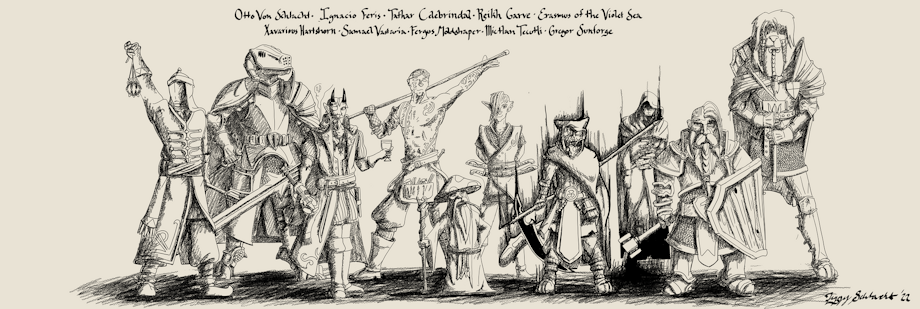 Otto Von Schlacht · Ignacio Feris · Talhar Celebrindal · Reikh Garve · Erasmus of the Violet Sea
Xavarius Hartshorn · Samael Vastaria · Fergus Moldshaper · Mictlan Tecotli · Gregor Sunforge
Schlacht '22